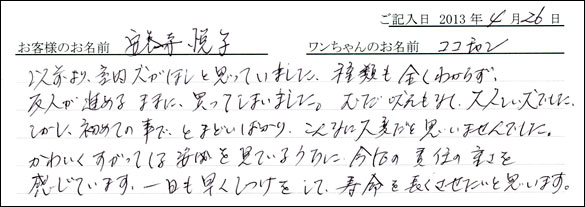 ご記入日 2013年4月26日
お客様のお名前 安長寿 悦子 ワンちゃんのお名前 ココちゃん
以前より、室内犬がほしと思っていました、種類も全くわからず、
友人が進めるままに、買ってしまいました。大人しい犬でした。
しかし、初めての事で、とまどいばかり、こんなに大変だと思いませんでした。
かわいくすがってくる姿を見ているうちに、今日の責任の重さを
感じています、一日も早くしつけをして、寿命を長くさせたいと思います。